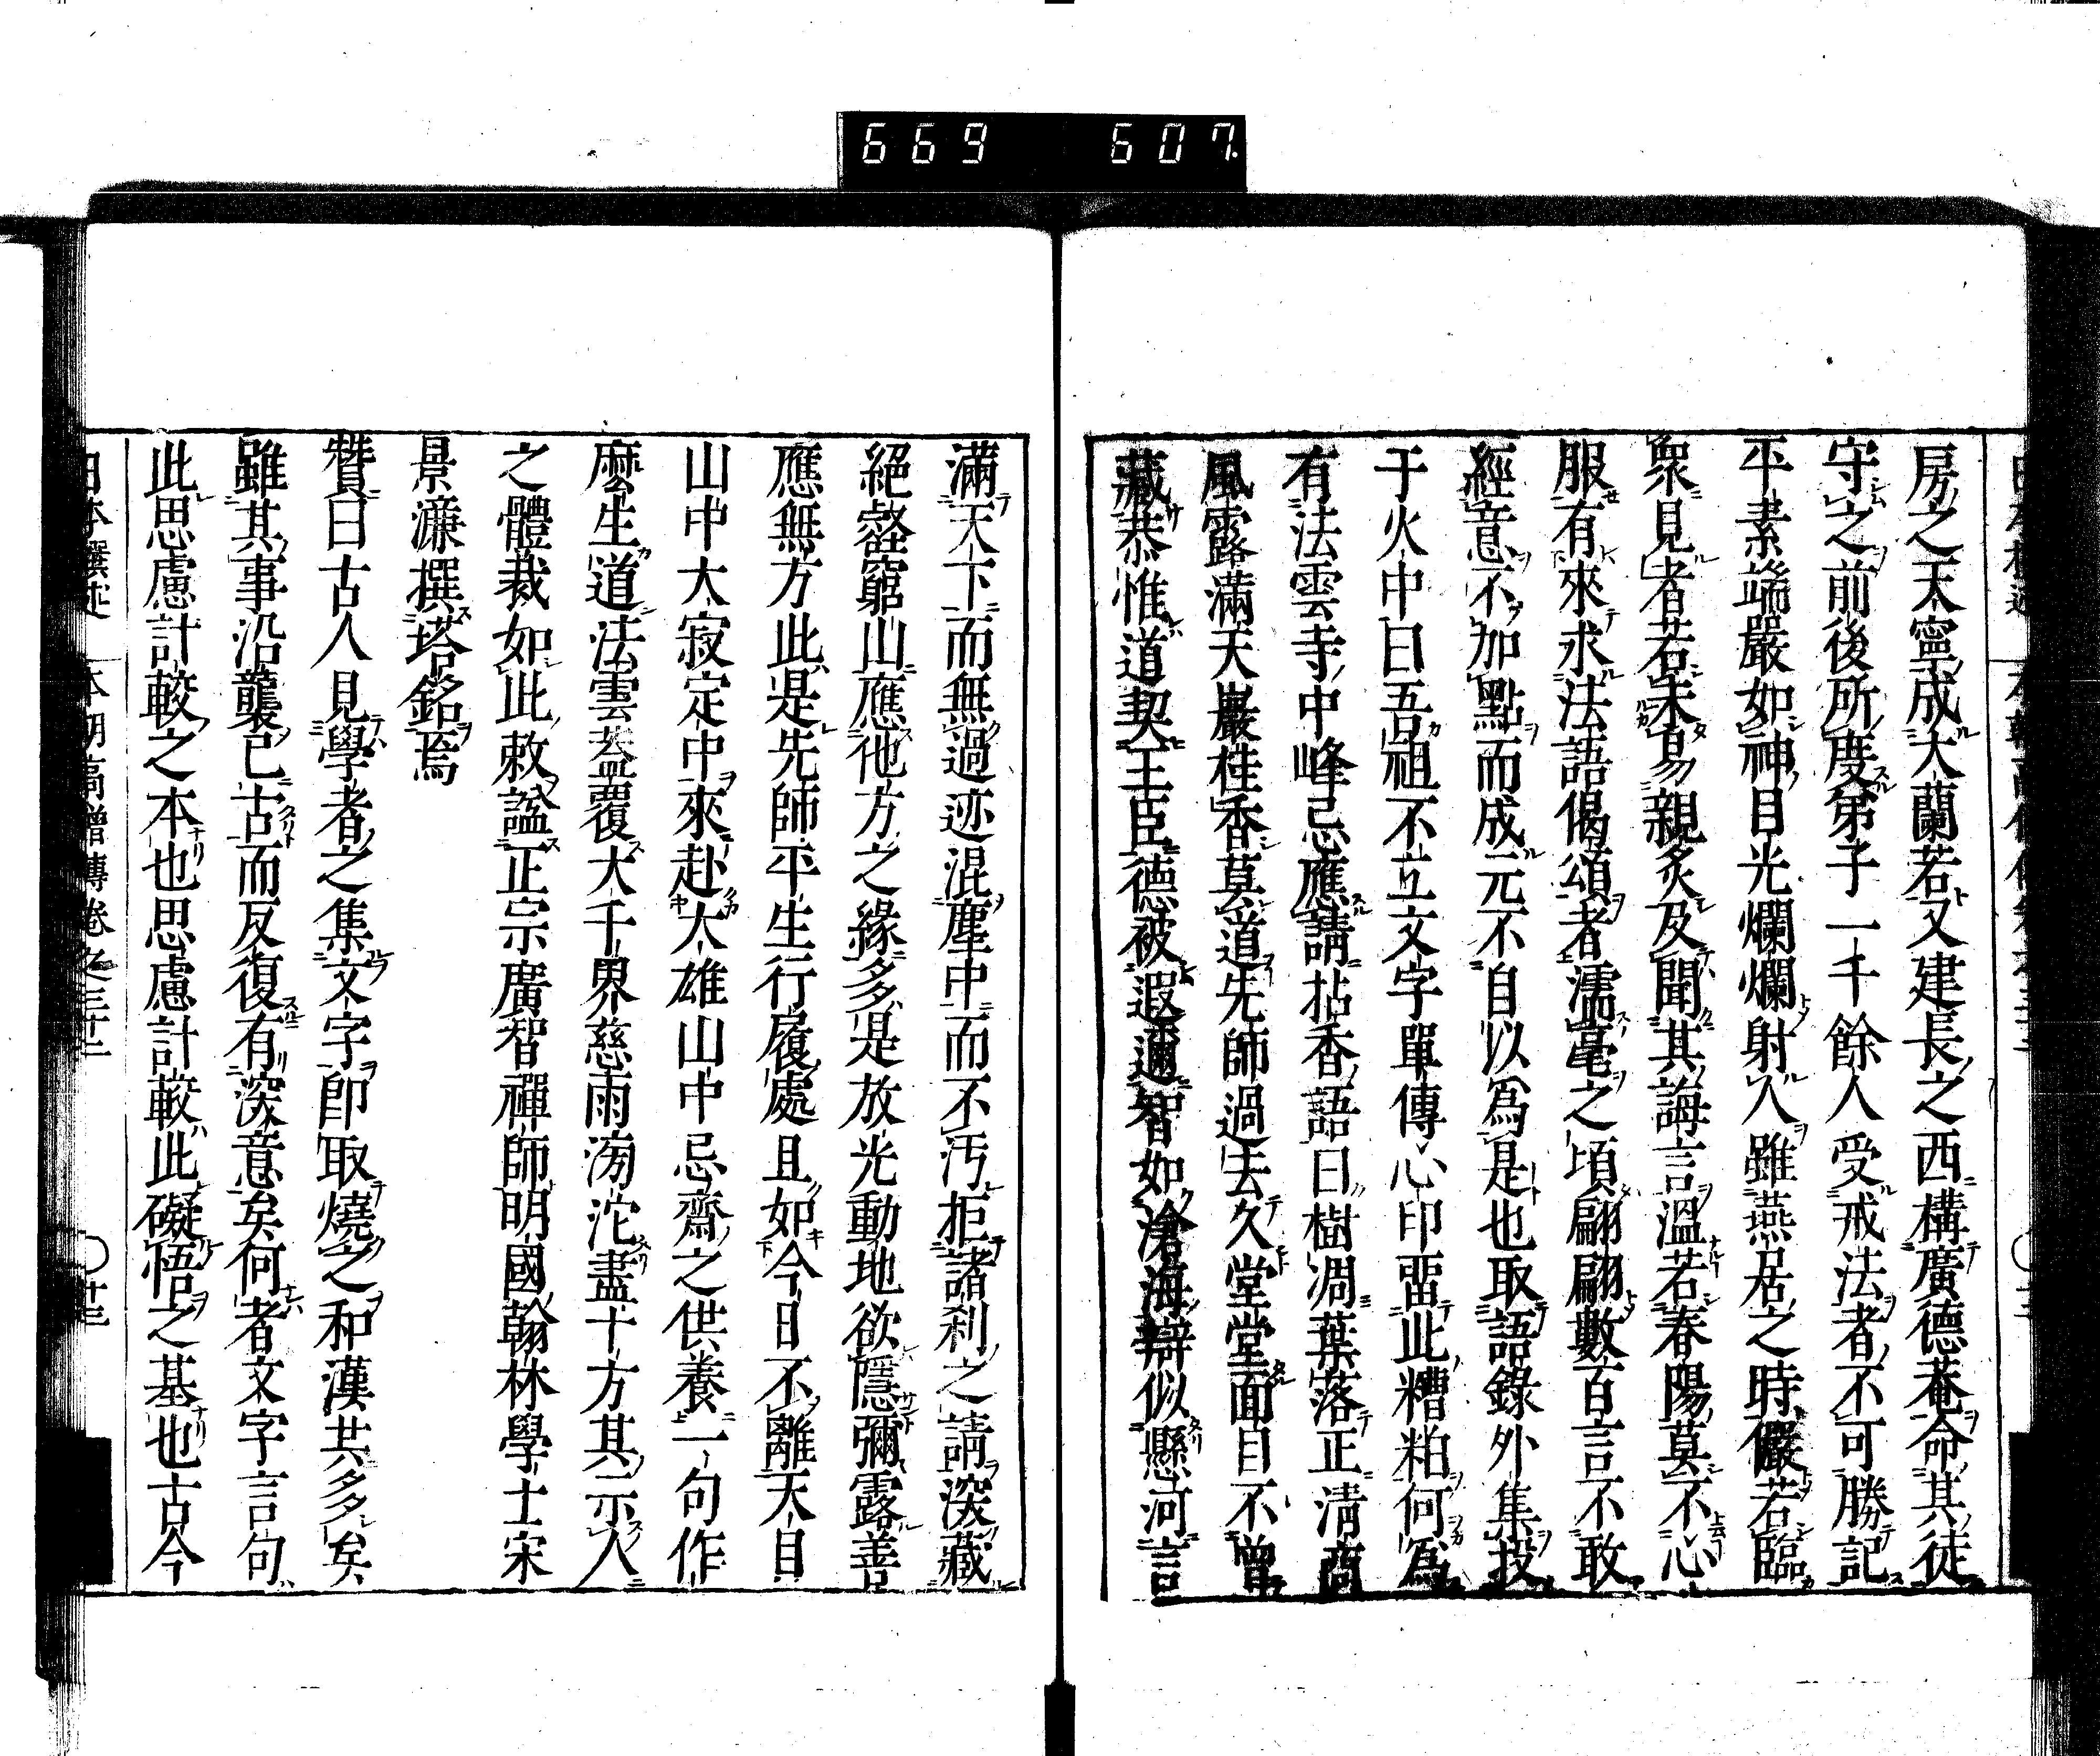 669 607
房之天寧成大蘭若又建長之西構廣德菴命其徒
守之前後所度第子一千餘人受戒法者不可勝記
平素端嚴如神目光爛爛射人雖燕居之時儼若臨
衆見者若未易親炙及聞其誨言溫若春陽莫不心
服有來求法語偈頌者濡毫之頃翩翩數百言不敢
經意不加點而成元不自以爲是也取語錄外集投
于火中曰吾祖不立文字單傳心印畱此糟粕何爲
有法雲寺中峰忌應請拈香語曰樹凋葉落正清商
風露滿天巖桂香莫道先師過去久堂堂面目不曾
藏恭惟道契王臣德被遐邇智如滄海辯似懸河言
滿天下而無過迹混塵中而不汚拒諸刹之請深藏
絕壑窮山應他方之緣多是放光動地欲隱彌露善
應無方此是先師平生行履處且如今日不離天目
山中大寂定中來赴大雄山中忌齋之供養一句作
麼生道法雲葢覆大千界慈雨滂沱盡十方其示人
之體裁如此敕諡正宗廣智禪師明國翰林學士宋
景濂撰塔銘焉
贊曰古人見學者之集文字卽取燒之和漢共多矣
雖其事沿襲已古而反復有深意矣何者文字言句
此思慮計較之本也思慮計較此礙悟之基也古今
日本撰述 本朝高僧傳卷之三十三 〇十三